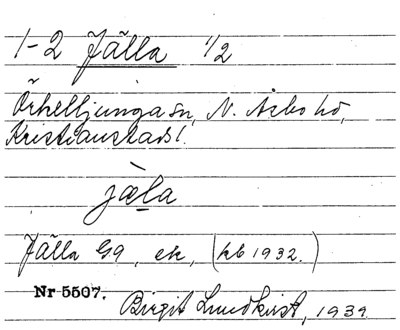 1-2 Jälla 1/2
Örkelljunga sn, N. Åsbo hd,
Kristianstads l.
jæ̀la
Jälla Gg, ek, (kb 1932.)
Nr 5507.
Birgit Lundkvist, 1939